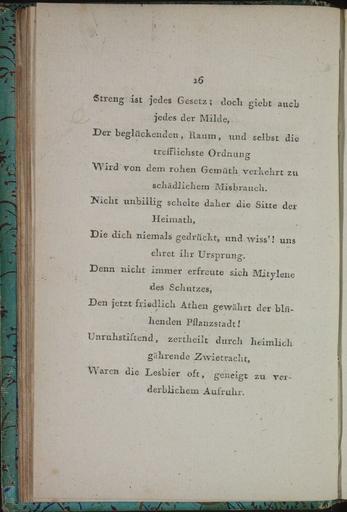 26
Streng ist jedes Gesetz; doch giebt auch
jedes der Milde,
Der beglückenden, Raum, und selbst die
trefflichste Ordnung
Wird von dem rohen Gemüth verkehrt zu
schädlichem Misbrauch.
Nicht unbillig schelte daher die Sitte der
Heimath,
Die dich niemals gedrückt, und wiss'! uns
ehret ihr Ursprung.
Denn nicht immer erfreute sich Mitylene
des Schutzes,
Den jetzt friedlich Athen gewährt der blü-
henden Pflanzstadt!
Unruhstiftend, zertheilt durch heimlich
gährende Zwietracht,
Waren die Lesbier oft, geneigt zu ver-
derblichem Aufruhr.